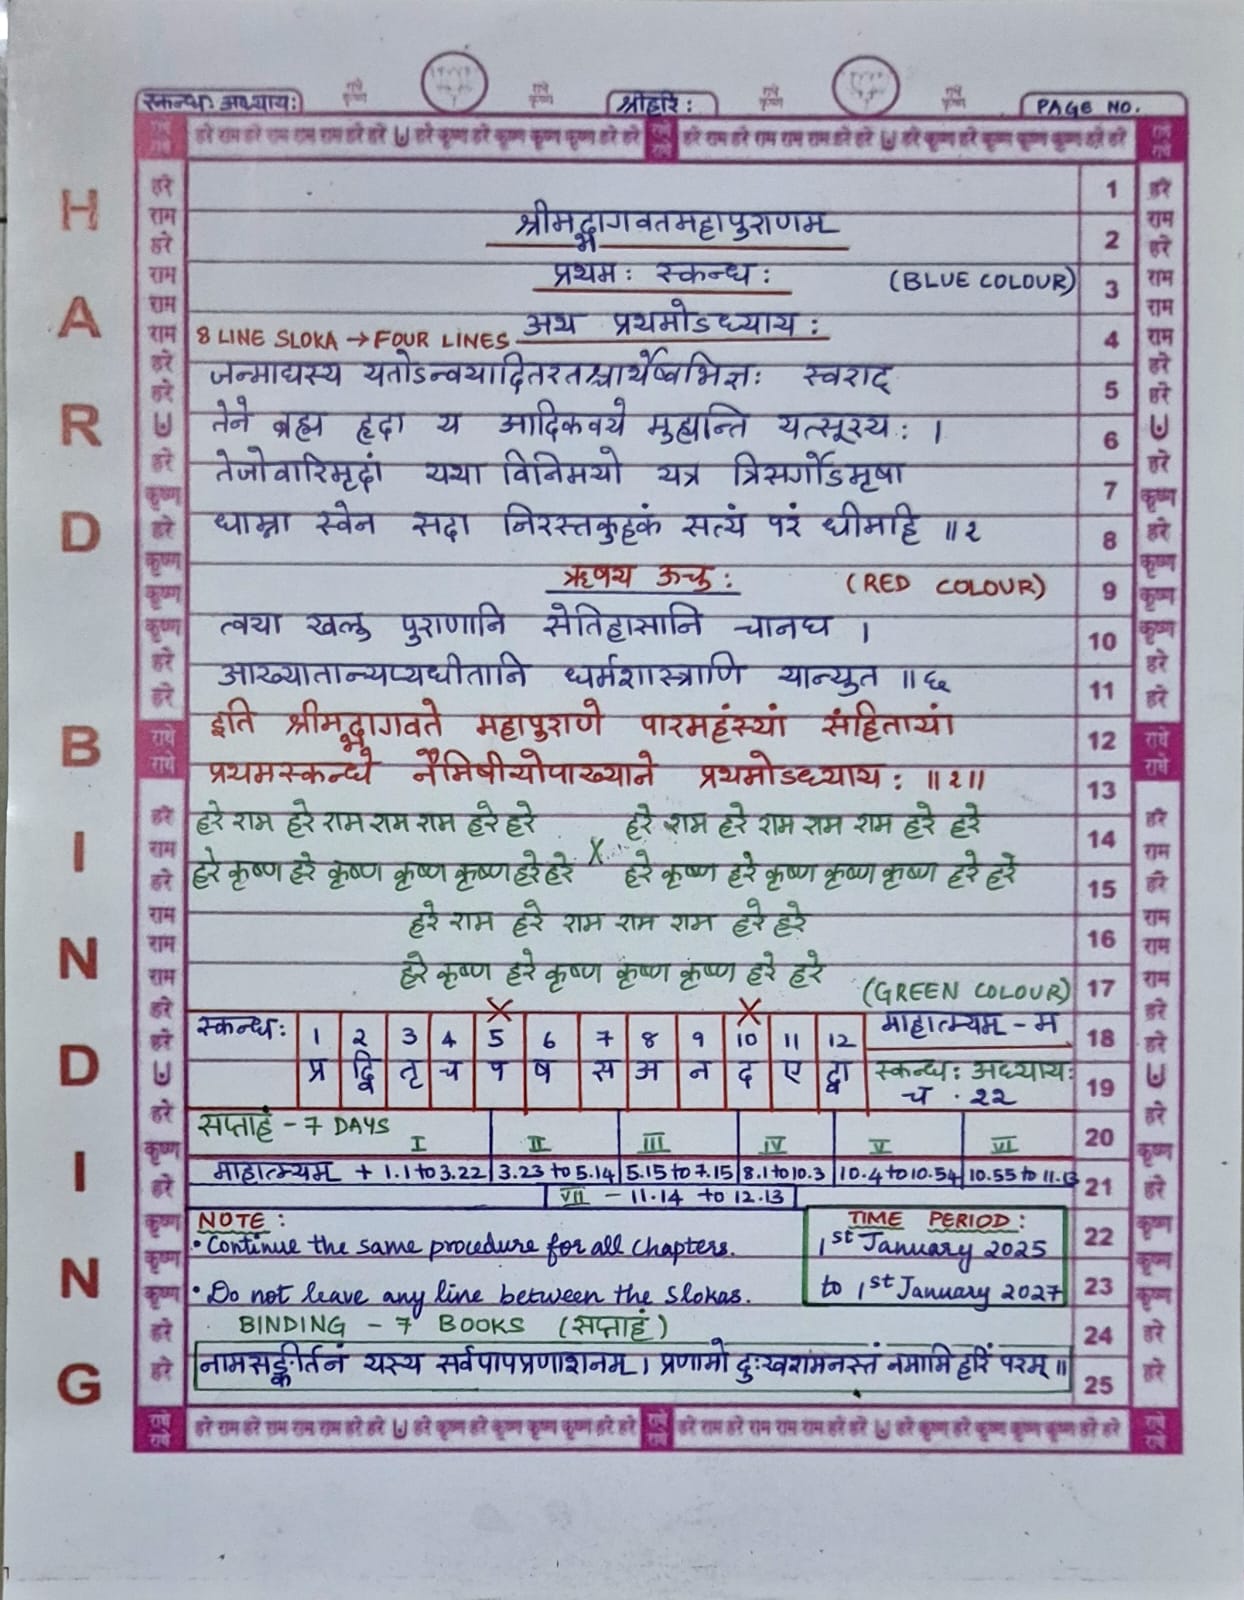 स्कन्धः अध्यायः
राधे कृष्ण
राधे कृष्ण
श्रीहरिः
राधे कृष्ण
राधे कृष्ण
PAGE NO.
राधे राधे हरे राम हरे राम राम राम हरे हरे हरे कृष्ण हरे कृष्ण कृष्ण कृष्ण हरे हरे राधे राधे हरे राम हरे राम राम राम हरे हरे हरे कृष्ण हरे कृष्ण कृष्ण कृष्ण हरे हरे राधे राधे
HARD BINDING
1
श्रीमद्भागवतमहापुराणम् 2
प्रथमः स्कन्धः (BLUE COLOUR) 3
8 LINE SLOKA → FOUR LINES अथ प्रथमोऽध्यायः 4
जन्माद्यस्य यतोऽन्वयादितरतश्चार्थेष्वभिज्ञः स्वराट् 5
तेने ब्रह्म हृदा य आदिकवये मुह्यन्ति यत्सूरयः । 6
तेजोवारिमृदां यथा विनिमयो यत्र त्रिसर्गोऽमृषा 7
धाम्ना स्वेन सदा निरस्तकुहकं सत्यं परं धीमहि ॥१ 8
ऋषय ऊचुः (RED COLOUR) 9
त्वया खलु पुराणानि सेतिहासानि चानघ । 10
आख्यातान्यप्यधीतानि धर्मशास्त्राणि यान्युत ॥६ 11
इति श्रीमद्भागवते महापुराणे पारमहंस्यां संहितायां 12
प्रथमस्कन्धे नैमिषीयोपाख्याने प्रथमोऽध्यायः ॥१॥ 13
हरे राम हरे राम राम राम हरे हरे हरे राम हरे राम राम राम हरे हरे 14
हरे कृष्ण हरे कृष्ण कृष्ण कृष्ण हरे हरे X हरे कृष्ण हरे कृष्ण कृष्ण कृष्ण हरे हरे 15
हरे राम हरे राम राम राम हरे हरे 16
हरे कृष्ण हरे कृष्ण कृष्ण कृष्ण हरे हरे (GREEN COLOUR) 17
X X
स्कन्धः 1 2 3 4 5 6 7 8 9 10 11 12 माहात्म्यम् - म 18
प्र द्वि तृ च प ष स अ न द ए द्वा स्कन्धः अध्यायः 19
च . २२
सप्ताहं - 7 DAYS I II III IV V VI 20
माहात्म्यम् + 1.1 to 3.22 3.23 to 5.14 5.15 to 7.15 8.1 to 10.3 10.4 to 10.54 10.55 to 11.13 21
VII - 11.14 to 12.13
NOTE: TIME PERIOD: 22
• Continue the same procedure for all chapters. 1st January 2025
• Do not leave any line between the slokas. to 1st January 2027 23
BINDING - 7 BOOKS (सप्ताहं) 24
नामसङ्कीर्तनं यस्य सर्वपापप्रणाशनम् । प्रणामो दुःखशमनस्तं नमामि हरिं परम् ॥ 25
राधे राधे हरे राम हरे राम राम राम हरे हरे हरे कृष्ण हरे कृष्ण कृष्ण कृष्ण हरे हरे राधे राधे हरे राम हरे राम राम राम हरे हरे हरे कृष्ण हरे कृष्ण कृष्ण कृष्ण हरे हरे राधे राधे